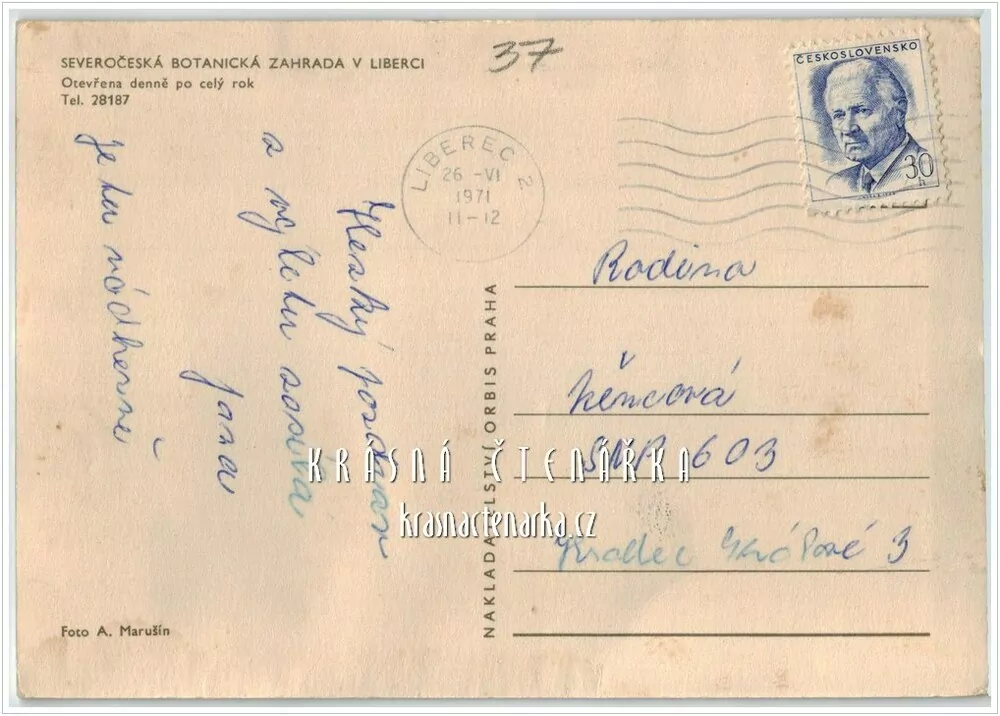 SEVEROČESKÁ BOTANICKÁ ZAHRADA V LIBERCI
Otevřena denně po celý rok
Tel. 28187
37
ČESKOSLOVENSKO
30
h
LIBEREC 2
26 -VI
1971
11-12
Hezký pozdrav
z výletu zasílá
Jana
je tu nádherně
NAKLADATELSTVÍ ORBIS PRAHA
Rodina
Němcová
SNP 603
Hradec Králové 3
KRÁSNÁ ČTENÁŘKA
krasnactenarka.cz
Foto A. Marušín